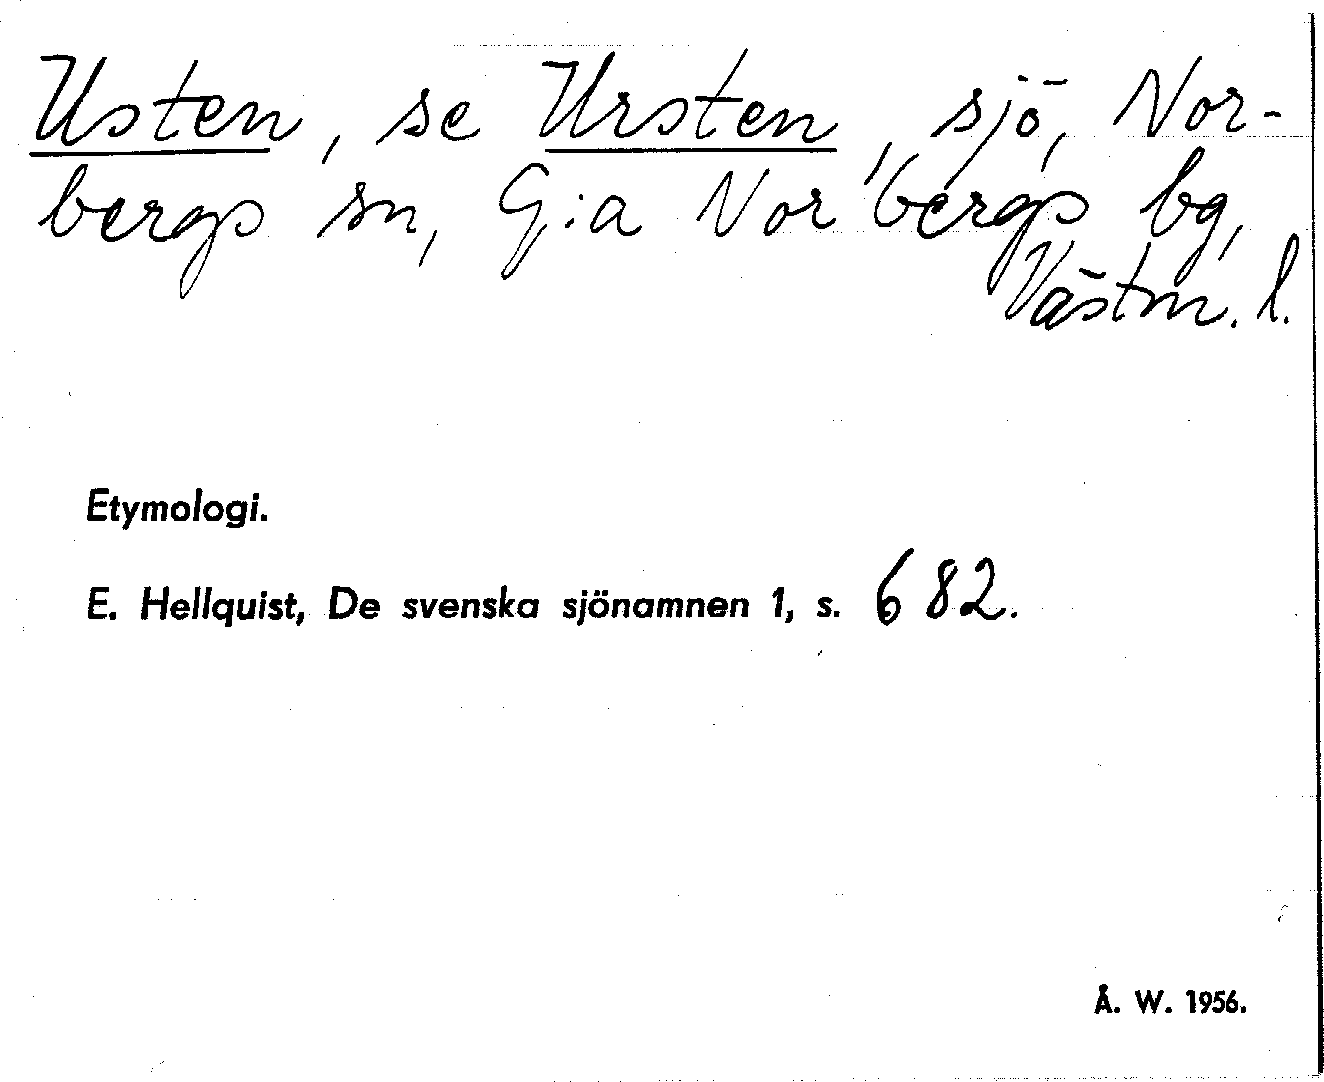 Usten, se Ursten, sjö, Nor-
bergs sn, G:a Norbergs bg,
Västm. l.
Etymologi.
E. Hellquist, De svenska sjönamnen 1, s. 682.
Å. W. 1956.